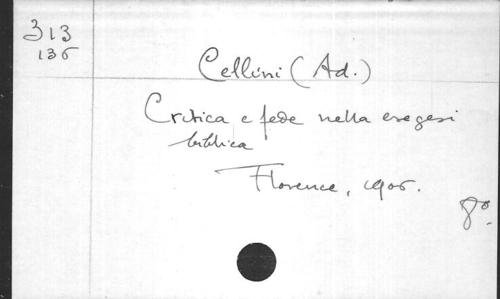 313
136
Cellini (Ad.)
Critica e fede nella esegesi
biblica
Florence, 1906.
8º.